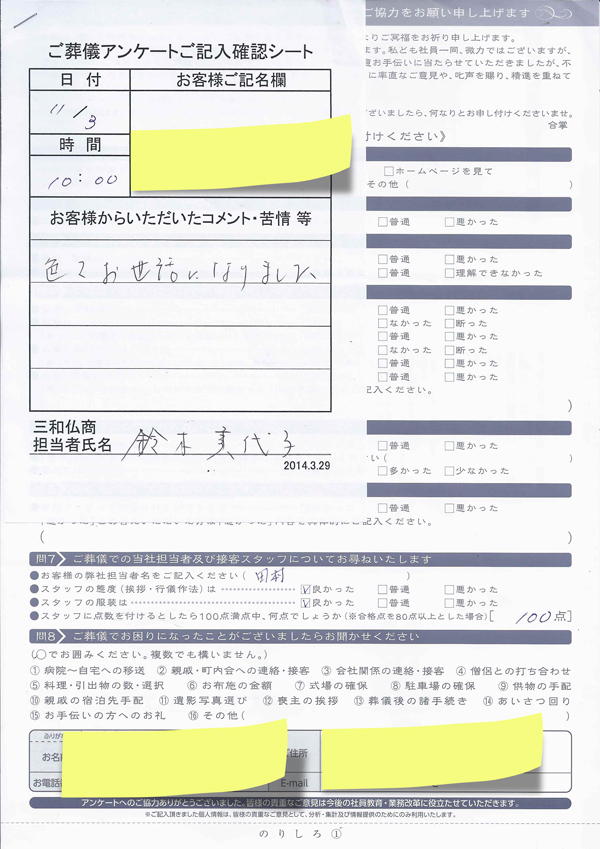 ご協力をお願い申し上げます
よりご冥福をお祈り申し上げます。
ます。私ども社員一同、微力ではございますが、
お手伝いに当たらせていただきましたが、不
に率直なご意見や、叱声を賜り、精進を重ねて
ございましたら、何なりとお申し付けくださいませ。
合掌
付けください》
□ホームページを見て
その他( )
□普通 □悪かった
□普通 □悪かった
□普通 □理解できなかった
□普通 □悪かった
□なかった □断った
□普通 □悪かった
□なかった □断った
□普通 □悪かった
□普通 □悪かった
記入ください。
)
□普通 □悪かった
さい( )
□多かった □少なかった
□普通 □悪かった
ご葬儀アンケートご記入確認シート
日付 お客様ご記名欄
11/3
時間
10:00
お客様からいただいたコメント・苦情 等
色々お世話になりました
三和仏商
担当者氏名 鈴木美代子
2014.3.29
記入ください。
( )
問7 ご葬儀での当社担当者及び接客スタッフについてお尋ねいたします
●お客様の弊社担当者名をご記入ください( 田村 )
●スタッフの態度(挨拶・行儀作法)は ☑良かった □普通 □悪かった
●スタッフの服装は ☑良かった □普通 □悪かった
●スタッフに点数を付けるとしたら100点満点中、何点でしょうか(※合格点を80点以上とした場合)[ 100点]
問8 ご葬儀でお困りになったことがございましたらお聞かせください
(○でお囲みください。複数でも構いません。)
①病院~自宅への移送 ②親戚・町内会への連絡・接客 ③会社関係の連絡・接客 ④僧侶との打ち合わせ
⑤料理・引出物の数・選択 ⑥お布施の金額 ⑦式場の確保 ⑧駐車場の確保 ⑨供物の手配
⑩親戚の宿泊先手配 ⑪遺影写真選び ⑫喪主の挨拶 ⑬葬儀後の諸手続き ⑭あいさつ回り
⑮お手伝いの方へのお礼 ⑯その他( )
ふりが
お名 ご住所
お電話 E-mail
アンケートへのご協力ありがとうございました。皆様の貴重なご意見は今後の社員教育・業務改革に役立たせていただきます。
※ご記入頂きました個人情報は、皆様の貴重なご意見として、分析・集計及び情報提供のためにのみ利用いたします。
のりしろ①